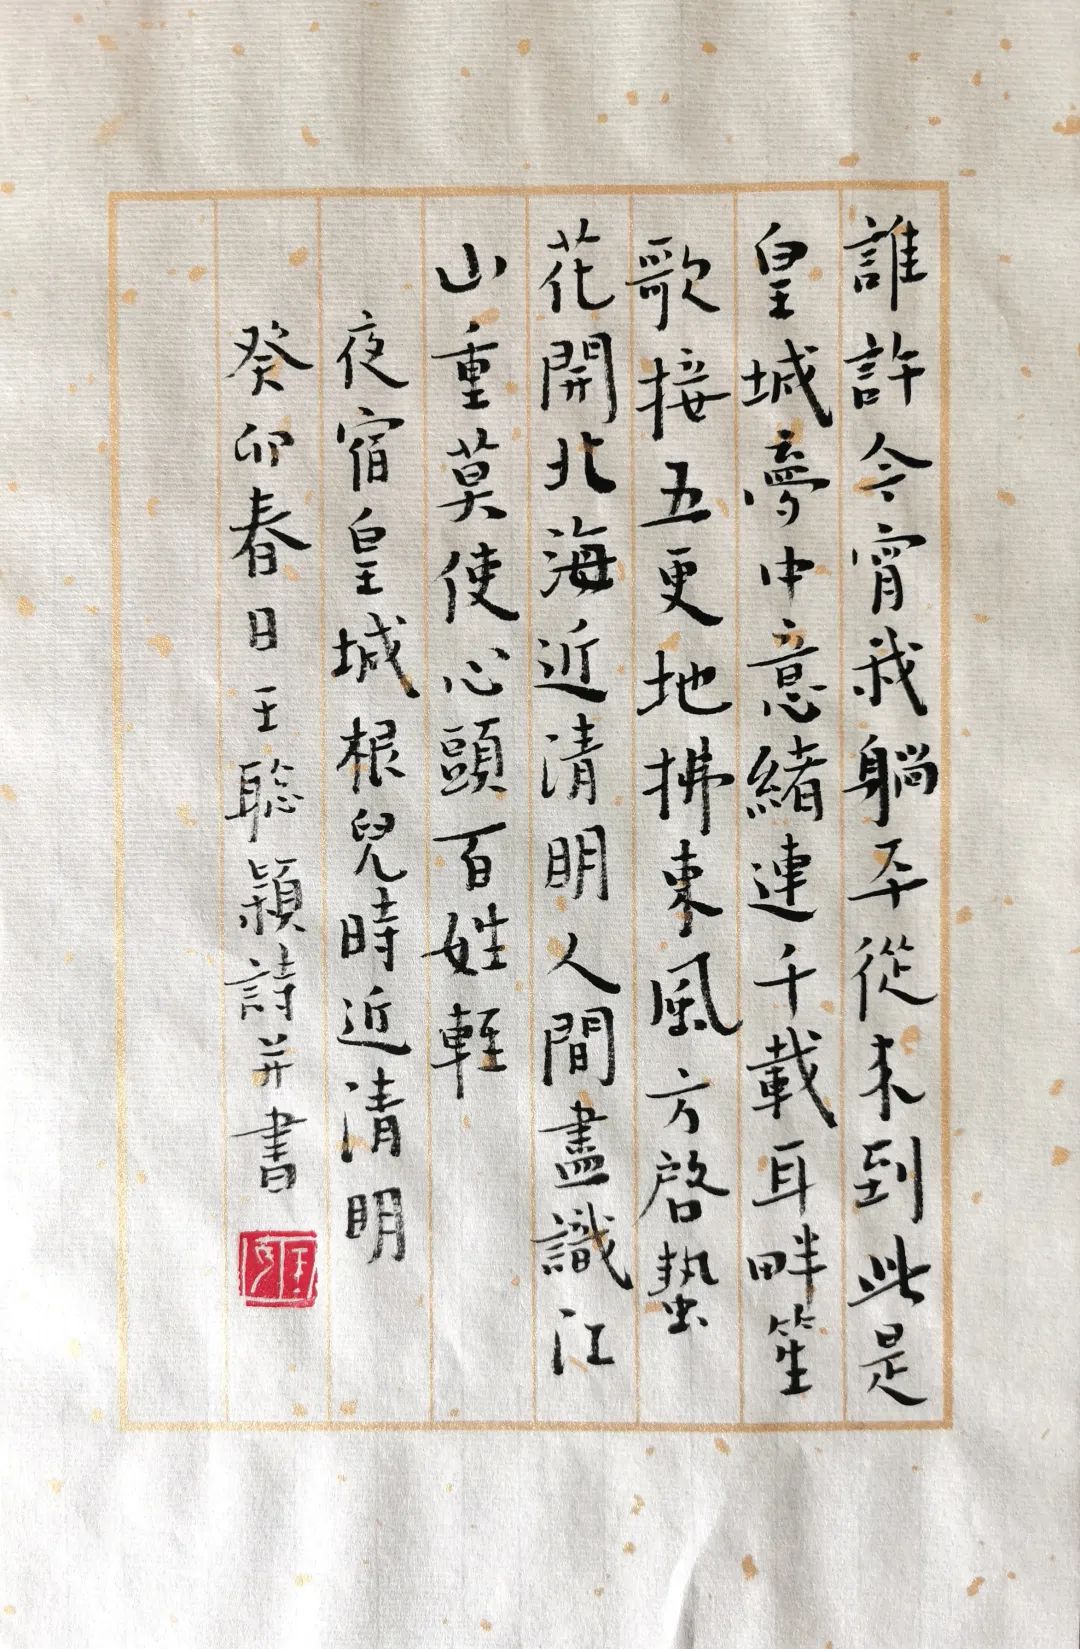 誰許今宵我躺平從來到此是
皇城夢中意緒連千載耳畔笙
歌接五更地拂東風方啓蟄
花開北海近清明人間盡識江
山重莫使心頭百姓輕
夜宿皇城根兒時近清明
癸卯春日王聰穎詩并書